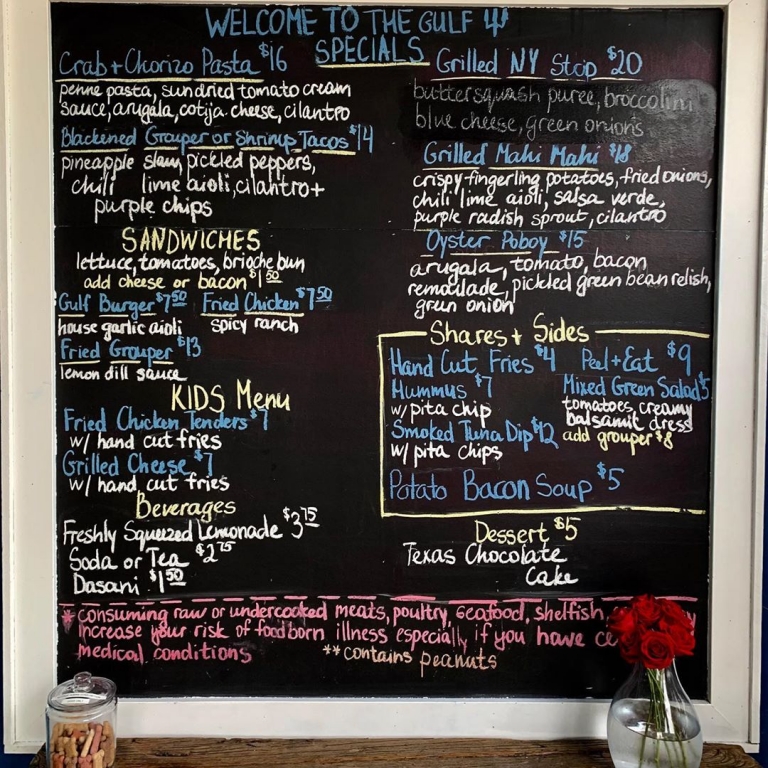 WELCOME TO THE GULF
SPECIALS
Crab + Chorizo Pasta $16
penne pasta, sundried tomato cream
sauce, arugala, cotija cheese, cilantro
Blackened Grouper or Shrimp Tacos $14
pineapple slaw, pickled peppers,
chili lime aioli, cilantro +
purple chips
SANDWICHES
lettuce, tomatoes, brioche bun
add cheese or bacon $1.50
Gulf Burger $7.50 Fried Chicken $7.50
house garlic aioli spicy ranch
Fried Grouper $13
lemon dill sauce
KIDS Menu
Fried Chicken Tenders $7
w/ hand cut fries
Grilled Cheese $7
w/ hand cut fries
Beverages
Freshly Squeezed Lemonade $3.75
Soda or Tea $2.75
Dasani $1.50
Grilled NY Strip $20
buttersquash puree, broccolini
blue cheese, green onions
Grilled Mahi Mahi $18
crispy fingerling potatoes, fried onions,
chili lime aioli, salsa verde,
purple radish sprout, cilantro
Oyster Poboy $15
arugala, tomato, bacon
remoulade, pickled green bean relish,
green onion
Shares + Sides
Hand Cut Fries $4 Peel + Eat $9
Hummus $7 Mixed Green Salad $5
w/ pita chip tomatoes, creamy
balsamic dress
Smoked Tuna Dip $12 add grouper $8
w/ pita chips
Potato Bacon Soup $5
Dessert $5
Texas Chocolate
Cake
* consuming raw or undercooked meats, poultry, seafood, shelfish,
increase your risk of foodborn illness especially if you have
medical conditions **contains peanuts